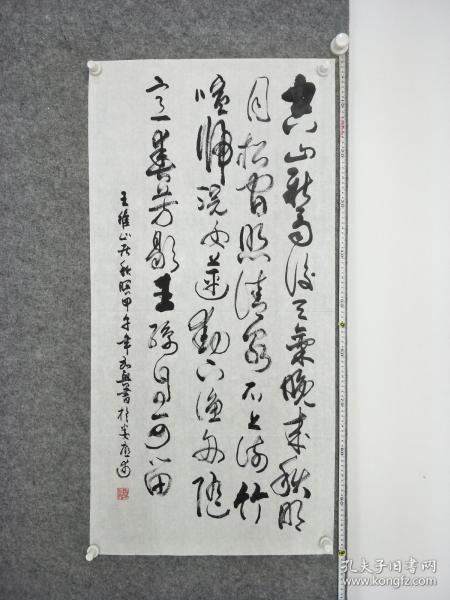 空山新雨后天气晚来秋明
月松间照清泉石上流竹
喧归浣女莲动下渔舟随
意春芳歇王孙自可留
王维山居秋暝甲午年
孔夫子旧书网
www.kongfz.com